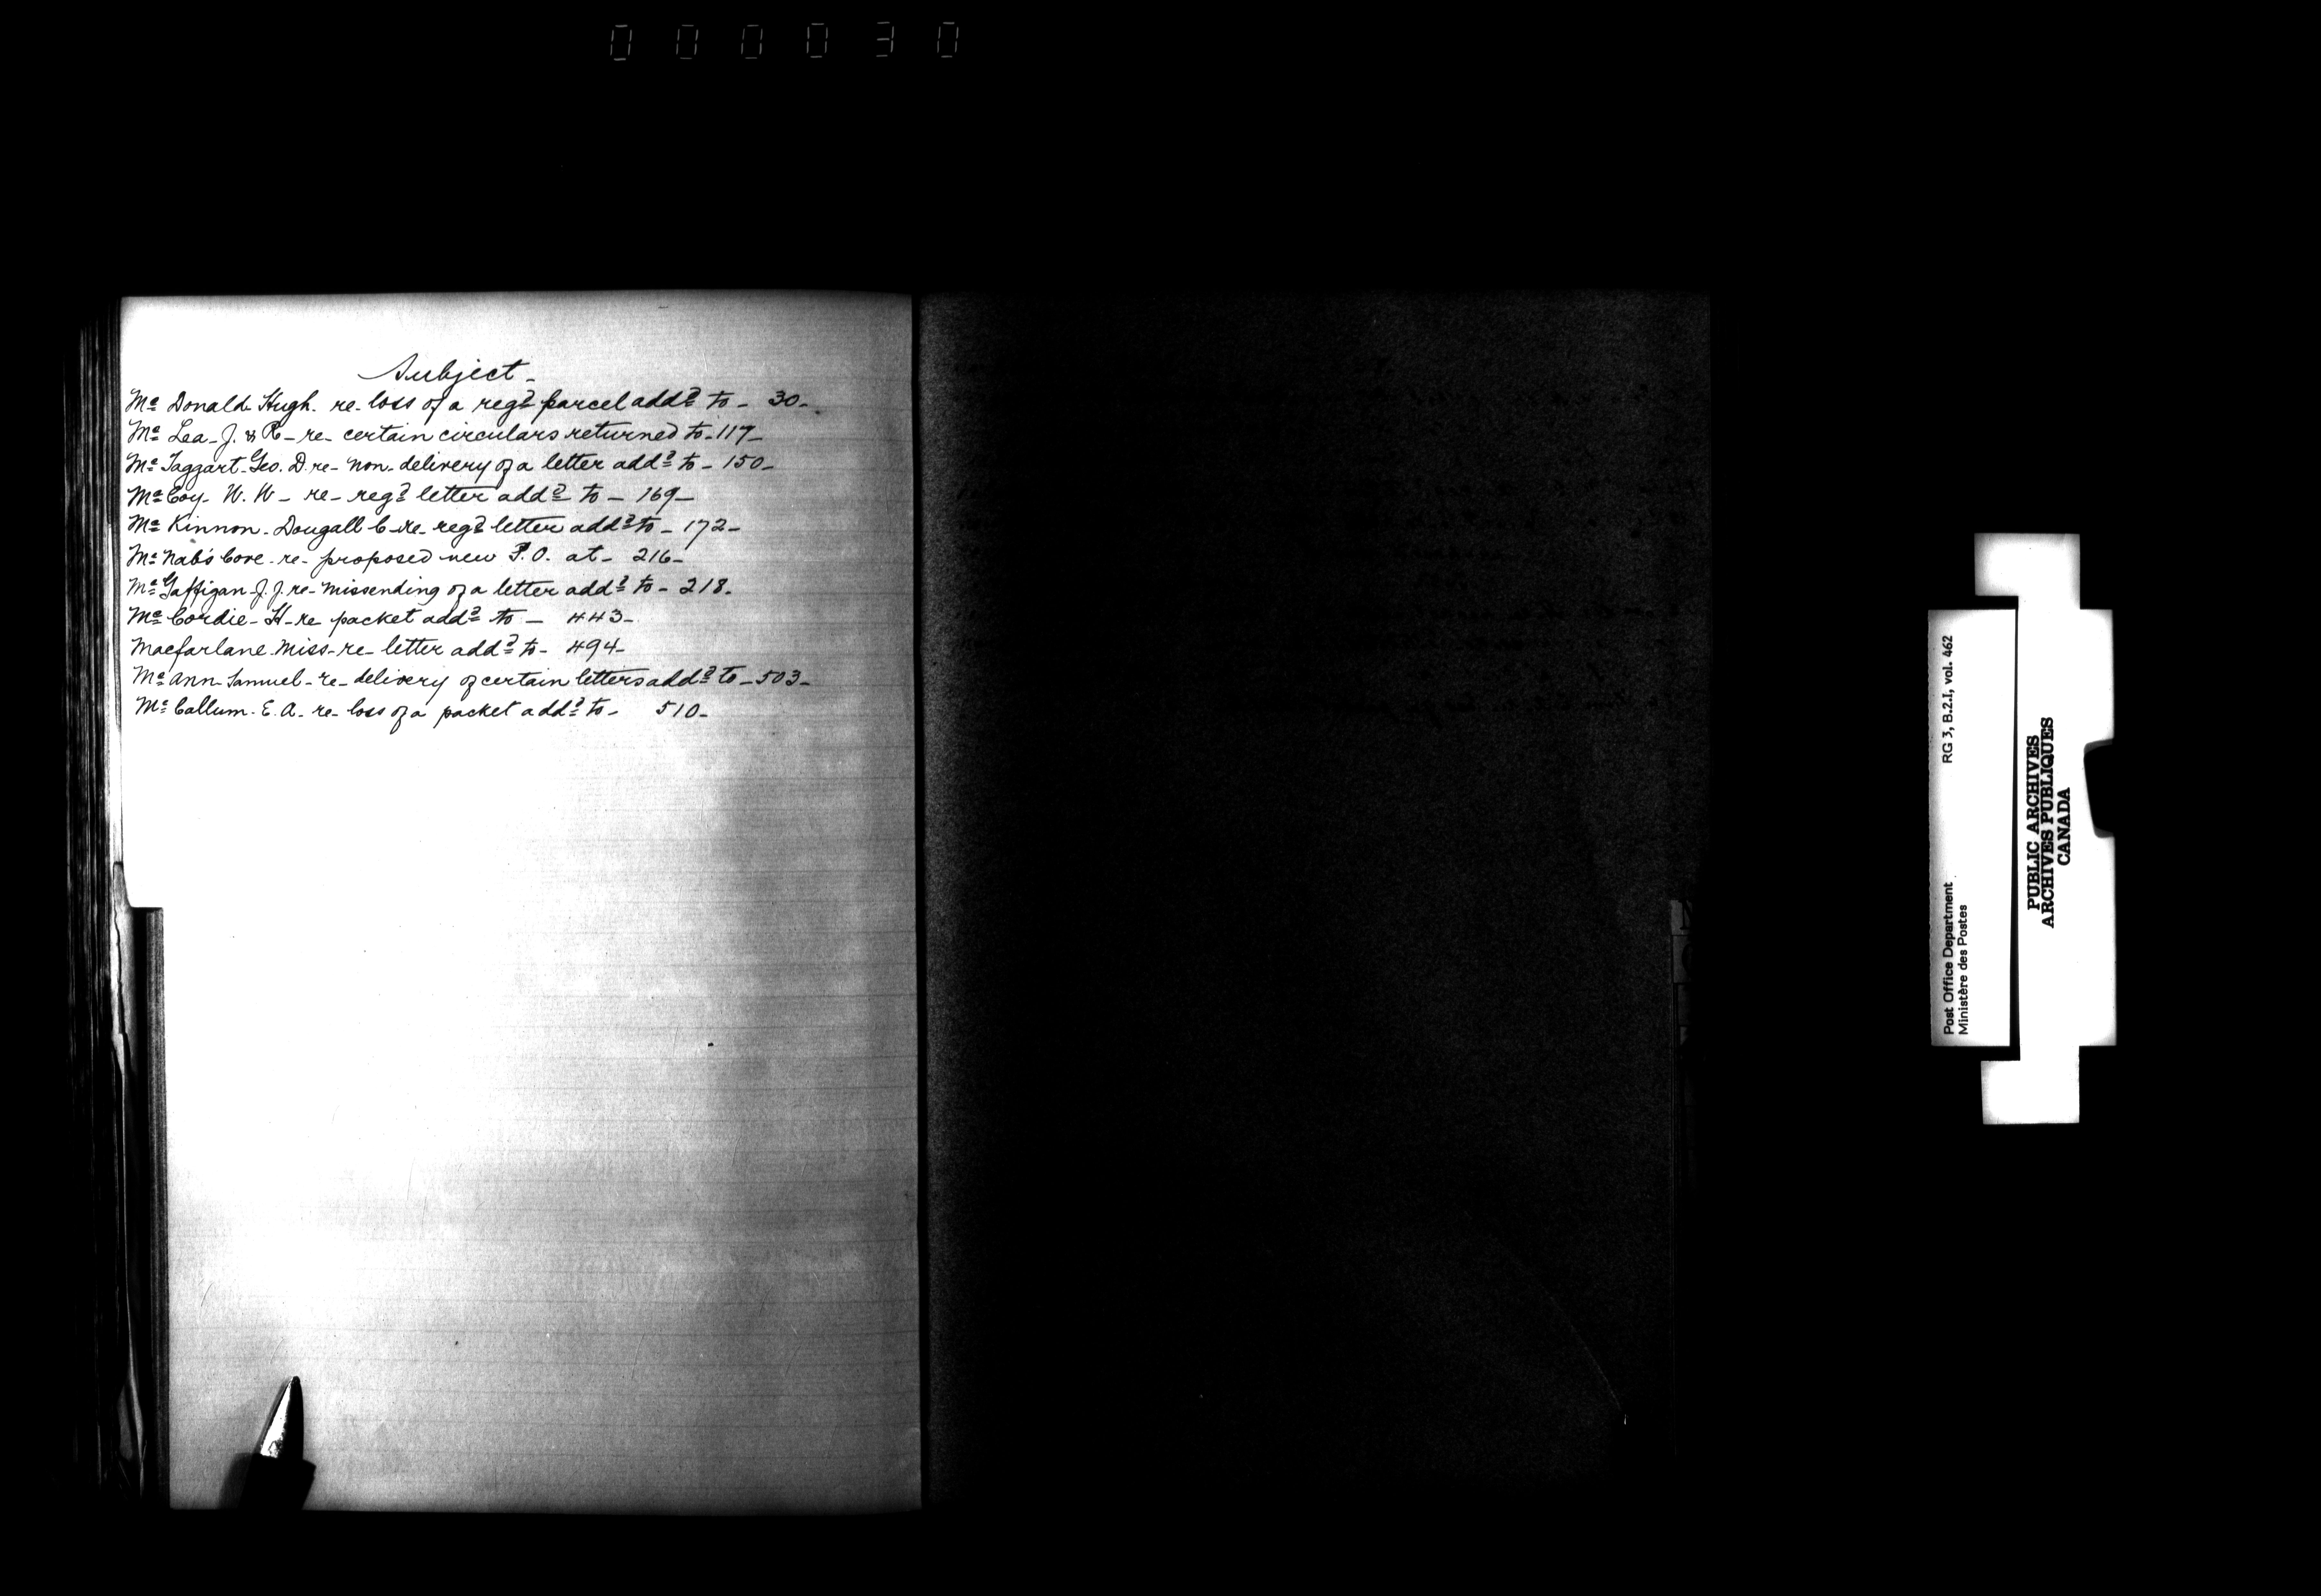 000030
Subject -
Mc Donald Hugh. re. loss of a regd parcel addd to - 30 -
Mc Lea - J. & R - re - certain circulars returned to - 117 -
Mc Taggart - Geo. D. re - non-delivery of a letter addd to - 150 -
Mc Coy - W. W - re - regd letter addd to - 169 -
Mc Kinnon - Dougall C - re - regd letter addd to - 172 -
Mc Nab's Cove - re - proposed new P.O. at - 216 -
Mc Gaffigan - J. J. re - missending of a letter addd to - 218.
Mc Cordie - H - re packet addd to - 443 -
Macfarlane Miss - re - letter addd to - 494 -
Mc Ann - Samuel - re - delivery of certain letters addd to - 503 -
Mc Callum - E. A. - re - loss of a packet addd to - 510 -
Post Office Department RG 3, B.2.I, vol. 462
Ministère des Postes
PUBLIC ARCHIVES
ARCHIVES PUBLIQUES
CANADA